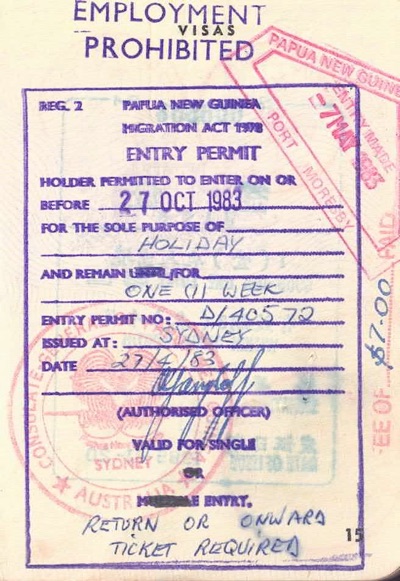 EMPLOYMENT
VISAS
PROHIBITED
PAPUA NEW GUINEA
ENTRY MADE
-7 MAY 1983
PORT MORESBY
REG. 2 PAPUA NEW GUINEA
MIGRATION ACT 1978
ENTRY PERMIT
HOLDER PERMITTED TO ENTER ON OR
BEFORE 27 OCT 1983
FOR THE SOLE PURPOSE OF
HOLIDAY
AND REMAIN UNTIL/FOR
ONE (1) WEEK
ENTRY PERMIT NO: D/40572
ISSUED AT: SYDNEY
DATE 27/4/83
(AUTHORISED OFFICER)
VALID FOR SINGLE
OR
ENTRY.
RETURN OR ONWARD
TICKET REQUIRED
15
CONSULATE-GENERAL
SYDNEY
AUSTRALIA
EE OF $7.00 PAID